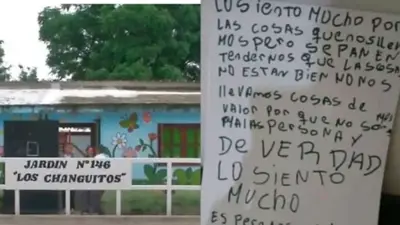 JARDIN N° 146
"LOS CHANGUITOS"
LO SIENTO MUCHO POR
LAS COSAS QUE NOS LLEV
MOS PERO SEPAN EN
TENDERNOS QUE LAS COSAS
NO ESTAN BIEN NO NOS
LLEVAMOS COSAS DE MAS
VALOR POR QUE NO SOMOS
MALAS PERSONA Y
DE VERDAD
LO SIENTO
MUCHO
ES